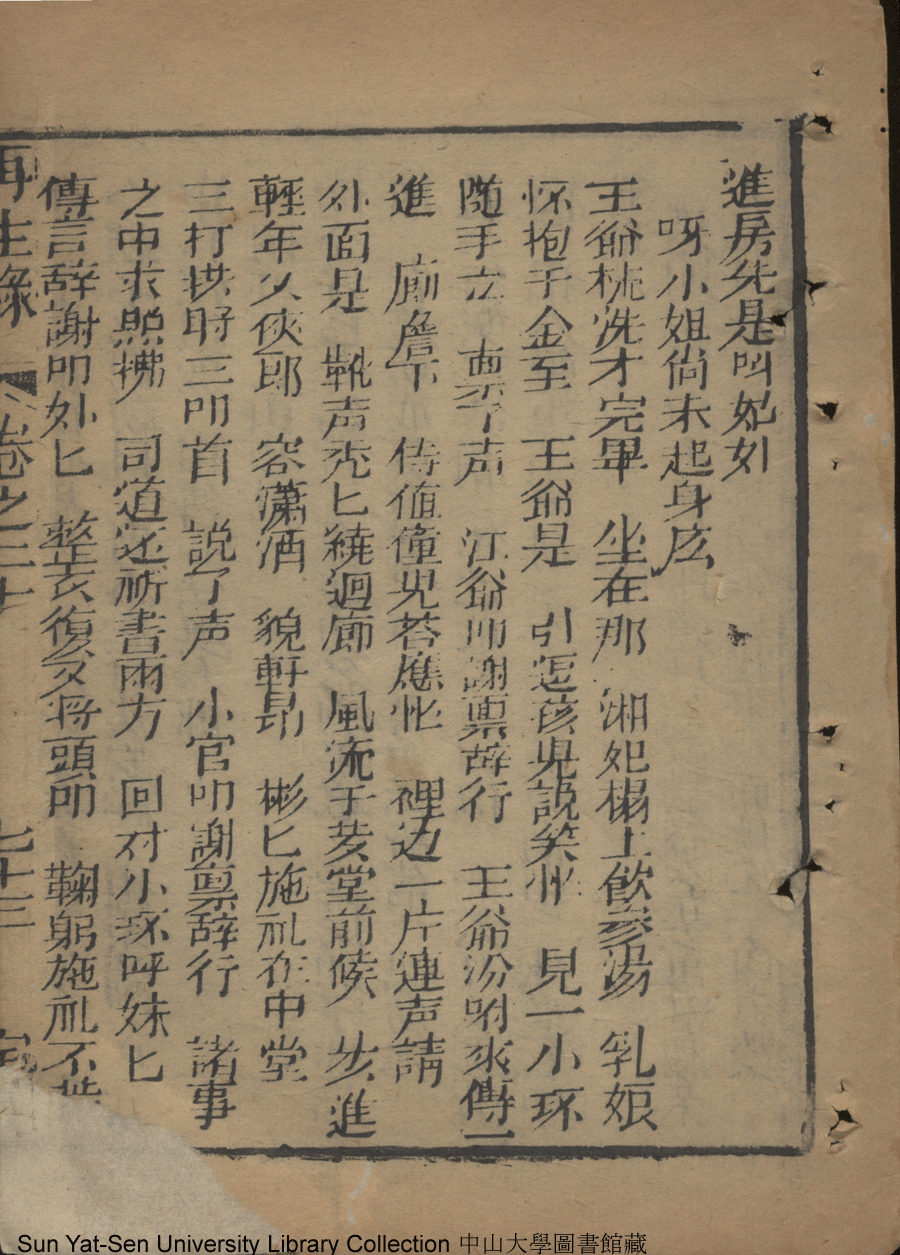 進房先是叫妃如
呀小姐尚未起身庅
王爺梳洗才完畢　坐在那　湘妃榻上飲參湯　乳娘
怀抱手金至　王爺是　引逗孩児説笑忙　見一小环
随手立　稟了声　江爺叩謝稟辞行　王爺汾咐來傳
進　廊簷下　侍值僮児荅應忙　裡边一片連声請
外面是　靴声秃匕繞迴廊　風流于堂前候　步進
輕年父侠郎　容瀟洒　貌軒昂　彬匕施礼在中堂
三打拱時三叩首　説了声　小官叩謝稟辞行　諸事
之中求照拂　司道还祈書兩方　回对小环呼妹匕
傳言辞謝叩外匕　整衣復又将頭叩　鞠躬施礼不
再生緣　卷之二十　七十三
Sun Yat-Sen University Library Collection 中山大學圖書館藏